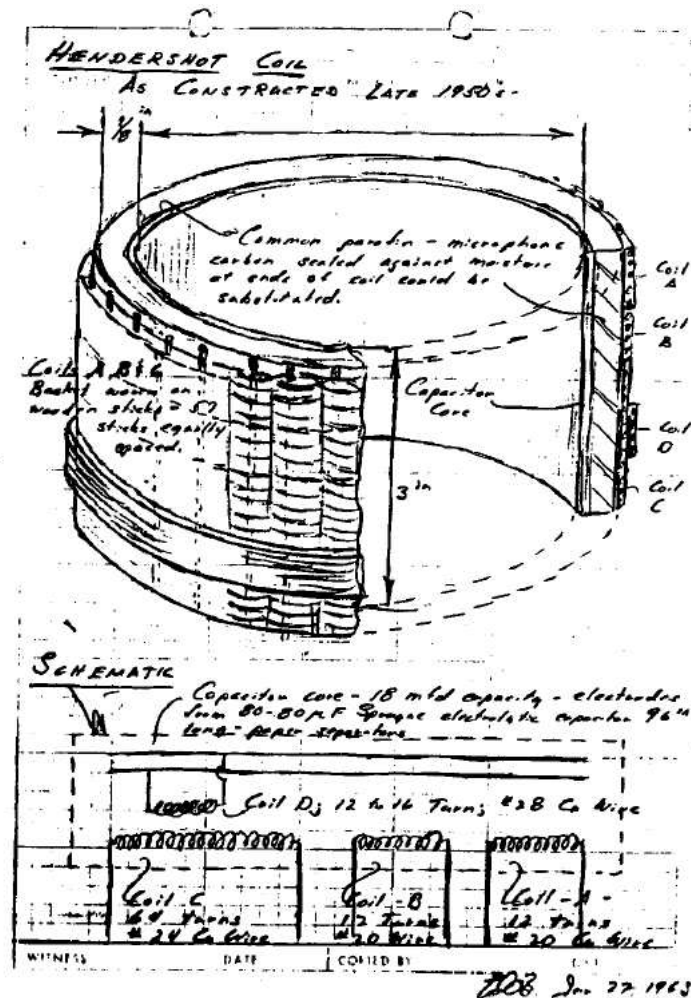 HENDERSHOT COIL
AS CONSTRUCTED LATE 1950's-
3/8 in
Common parafin - microphone
carbon sealed against moisture
at ends of coil could be
substituted.
Coil
A
Coil
B
Coils A B & C
Basket woven on
wooden sticks = 57
sticks equally
spaced.
Capacitor
Core
Coil
D
3 in
Coil
C
SCHEMATIC
Capacitor core - 18 mfd capacity - electrodes
from 80-80 µF Sprague electrolytic capacitor 96 in
long - paper separators
Coil D; 12 to 16 Turns; #28 Cu Wire
Coil C
64 turns
# 24 Cu Wire
Coil - B
12 Turns
#20 Wire
Coil - A -
12 turns
# 20 Cu Wire
WITNESS DATE COPIED BY
Jan 27 1963